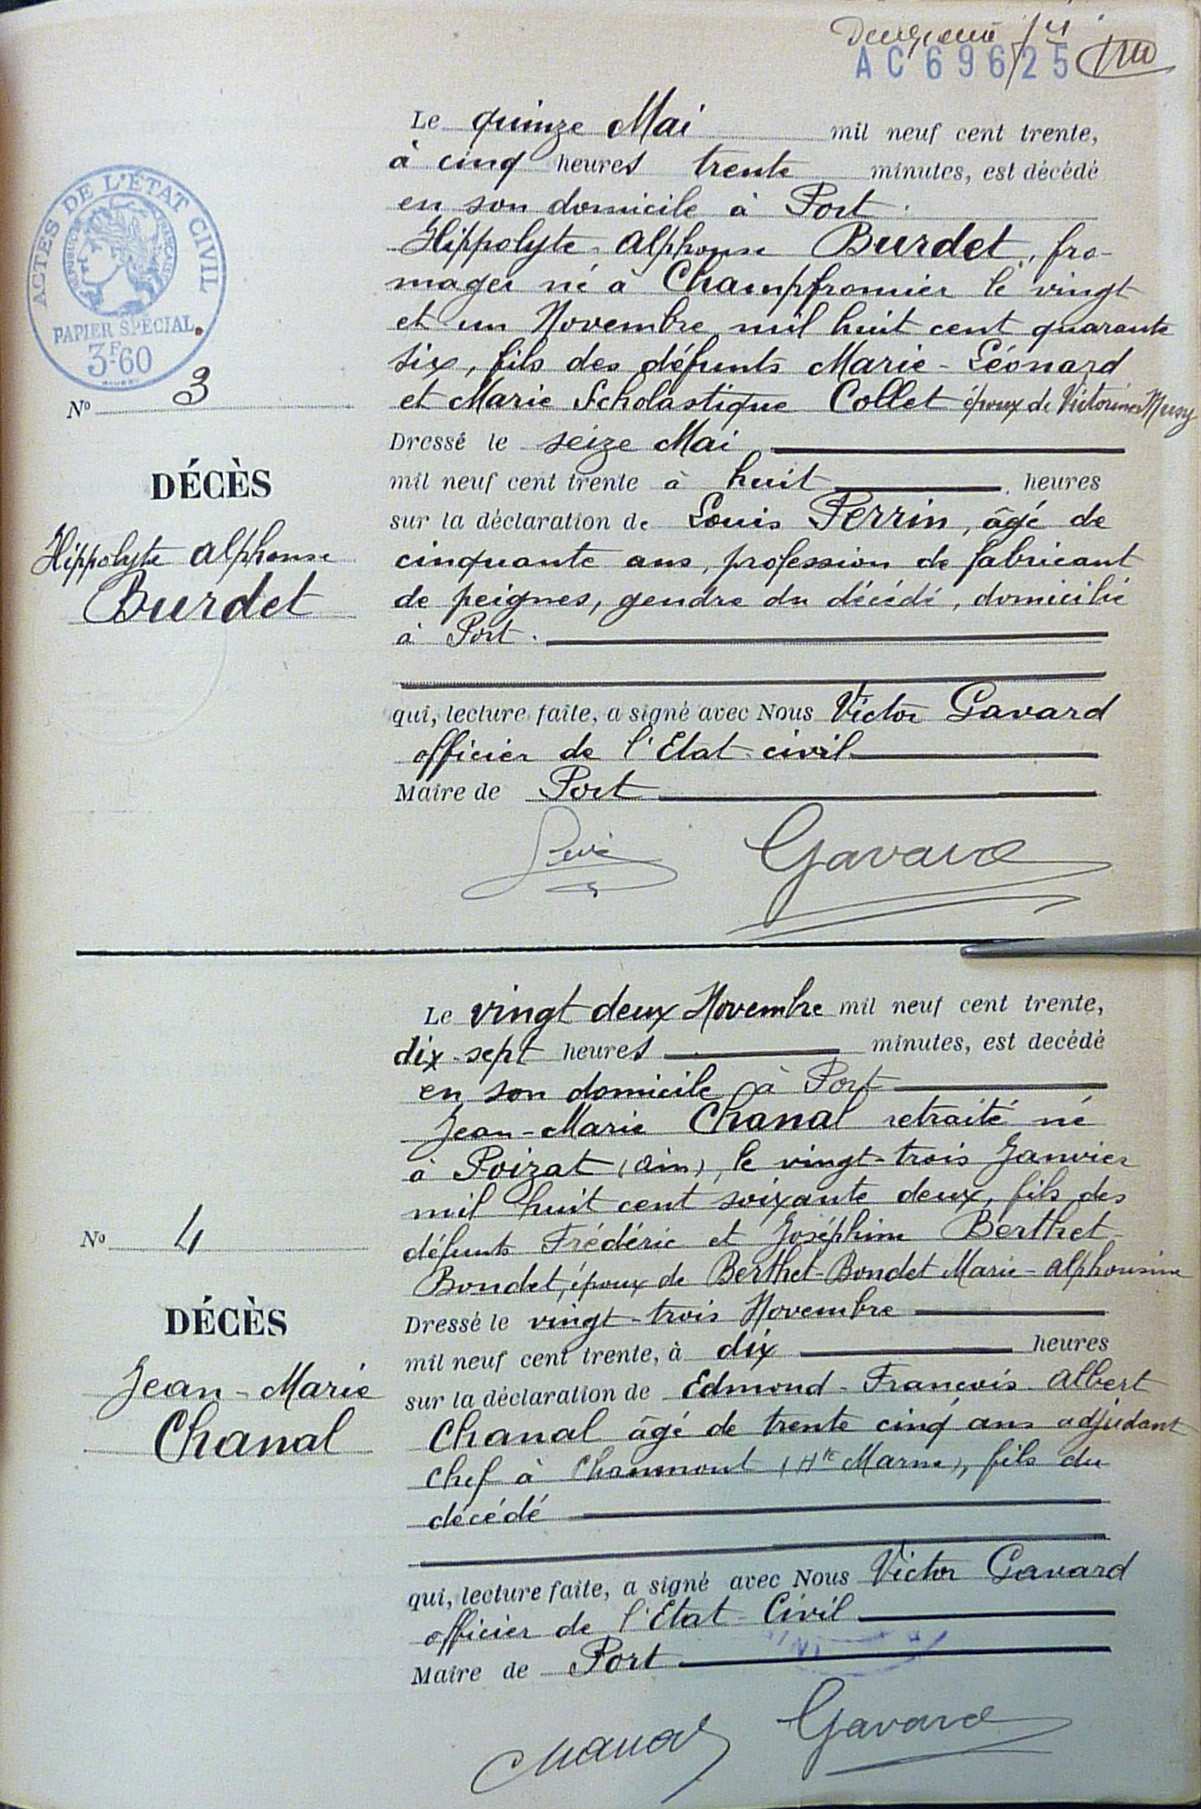 Deuxième
AC 696/25
ACTES DE L'ÉTAT CIVIL
RÉPUBLIQUE FRANÇAISE
PAPIER SPÉCIAL
3F60
Nº 3
DÉCÈS
Hippolyte Alphonse
Burdet
Le quinze Mai mil neuf cent trente,
à cinq heures trente minutes, est décédé
en son domicile à Port
Hippolyte Alphonse Burdet, fro-
mager né à Champfromier le vingt
et un Novembre mil huit cent quarante
six, fils des défunts Marie-Léonard
et Marie Scholastique Collet époux de Victorine Musy
Dressé le seize Mai
mil neuf cent trente à huit heures
sur la déclaration de Louis Perrin, âgé de
cinquante ans, profession de fabricant
de peignes, gendre du décédé, domicilié
à Port.
qui, lecture faite, a signé avec Nous Victor Gavard
officier de l'Etat-civil
Maire de Port
Gavard
Nº 4
DÉCÈS
Jean-Marie
Chanal
Le vingt deux Novembre mil neuf cent trente,
dix-sept heures minutes, est decédé
en son domicile à Port
Jean-Marie Chanal retraité né
à Poizat (Ain), le vingt-trois Janvier
mil huit cent soixante deux, fils des
défunts Frédéric et Joséphine Berthet-
Bondet, époux de Berthet-Bondet Marie-Alphonsine
Dressé le vingt-trois Novembre
mil neuf cent trente, à dix heures
sur la déclaration de Edmond-François-Albert
Chanal âgé de trente cinq ans adjudant
chef à Chaumont (Hte Marne), fils du
décédé
qui, lecture faite, a signé avec Nous Victor Gavard
officier de l'Etat-Civil
Maire de Port
Chanal Gavard